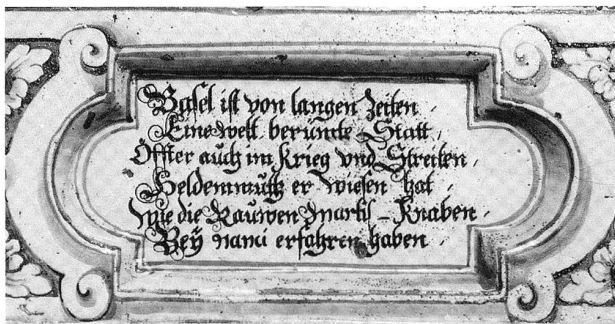 Basel ist von langen Zeiten,
Eine welt berümte Statt,
Öffter auch im Krieg vnd Streiten,
Heldenmuth er wiesen hat
Wie die Rauwen Martis-Knaben,
Beÿ Nanci erfahren haben,